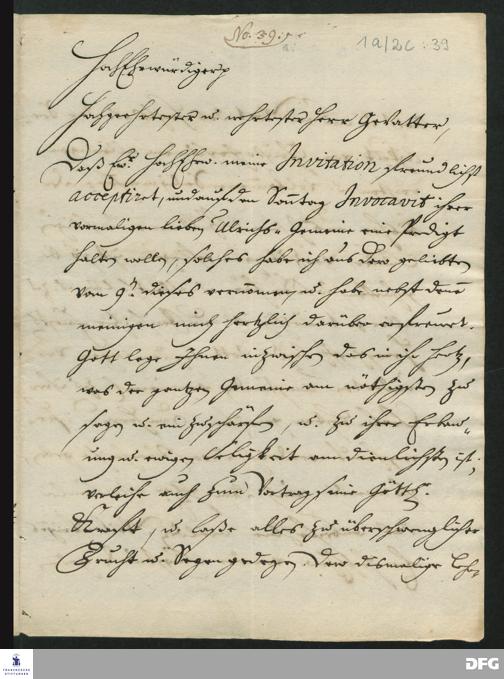 No. 39.
1a/2c : 39
HochEhrwürdiger p
Hochgeehrtester u. wehrtester Herr Gevatter,
Daß Ew. HochEhrw. meine Invitation freundlichst
acceptiret, und auf den Sontag Invocavit ihrer
vormaligen lieben Ulrichs-Gemeine eine Predigt
halten wollen, solches habe ich aus dero geliebten
vom 9t. dieses vernommen, u. habe nebst denen
meinigen mich hertzlich darüber erfreuet.
Gott lege Ihnen inzwischen das in ihr Hertz,
was der gantzen Gemeine am nöthigsten zu
sagen u. einzuschärfen, u. zu ihrer Erbau-
ung u. ewigen Seligkeit am dienlichsten ist;
verleihe auch zum Vortrag seine Göttl.
Kraft, u. laße alles zu überschwenglicher
Frucht u. Segen gedeyen. Dero dismalige
FRANCKESCHE
STIFTUNGEN
DFG